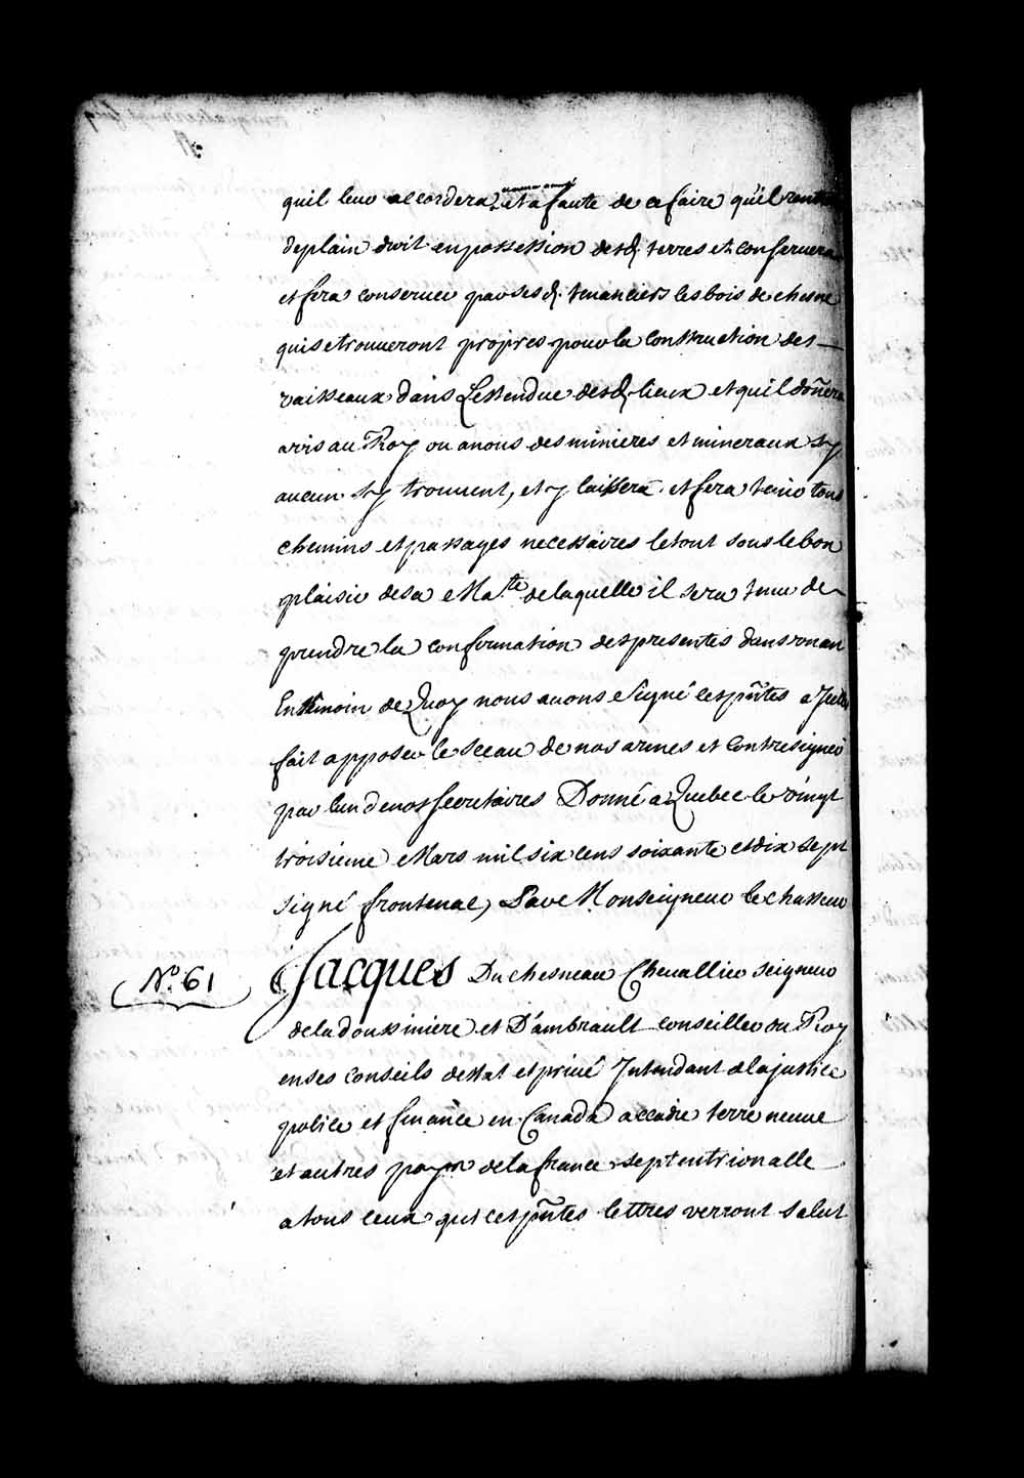 quil leur accordera, et a faute de ce faire qu'il rentrera
de plain droit en possession desd. terres et conservera
et fera conserver par sesd. tenanciers les bois de chesne
qui se trouveront propres pour la construction des
vaisseaux dans Lestendue desd. lieux et quil don̄era
avis au Roy ou a nous des minieres et mineraux sy
aucun sy trouvent, et y laissera et fera tenir tous
chemins et passages necessaires le tout sous le bon
plaisir de sa Ma.te de laquelle il sera tenu de
prendre la confirmation des presentes dans un an
En temoin de Quoy nous avons signé ces pn̄tes a Icelles
fait apposer le sceau de nos armes et contresigner
par lun de nos secretaires Donné a Quebec le vingt
troisieme Mars mil six cens soixante et dix sept
signé frontenac, Par Monseigneur le chasseur
N.o 61
Jacques Duchesneau Chevallier seigneur
de la doussiniere et D'ambrault conseiller du Roy
en ses conseils destat et privé Intendant de la justice
police et finance en Canada accadie terre neuve
et autres pays de la france septentrionalle
a tous ceux qui ces pn̄tes lettres verront salut